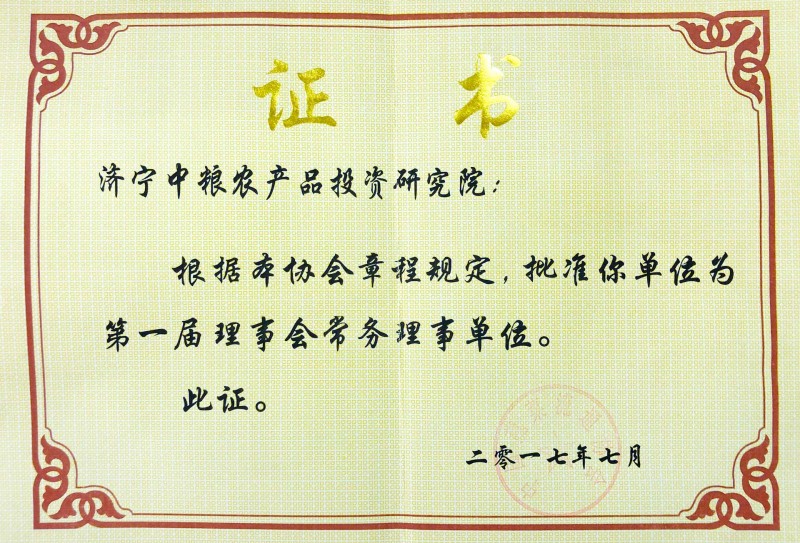 证书
济宁中粮农产品投资研究院：
根据本协会章程规定，批准你单位为
第一届理事会常务理事单位。
此证。
二零一七年七月